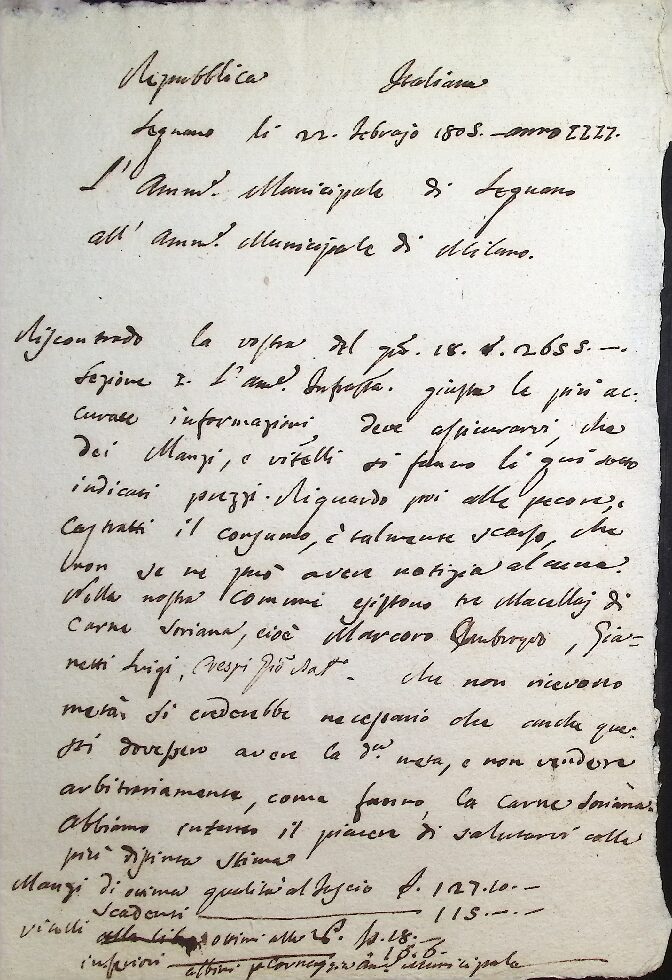 Repubblica Italiana
Legnano li 22. Febrajo 1805. anno IIII.
L'Amm.e Municipale di Legnano
all'Amm.e Municipale di Milano.
Riscontrado la vostra del 18. 2655.
Sezione 2. L'am.e Infrassa. giusta le più ac-
curate informazioni deve assicurarvi, che
dei Manzi, e vitelli si fanno li qui sotto
indicati prezzi. Riguardo poi alle pecore, e
Castratti il consumo, è talmente scarso, che
non se ne può avere notizia alcuna.
Nella nostra Comune esistono tre Macellaj di
Carne Soriana, cioè Marcoro Ambrogio, Gia=
netti Luigi, Crespi Gio Bat.a che non ricevono
metà. Si crederebbe necessario che anche que-
sti dovessero avere la d.a meta, e non vendere
arbitrariamente, come fanno, la Carne Soriana.
Abbiamo intanto il piacere di salutarvi colla
più distinta stima
Manzi di ottima qualità al 127.10.
scadenti 115.
Vitelli ottimi alla 18.
inferiori 15.6
Municipale